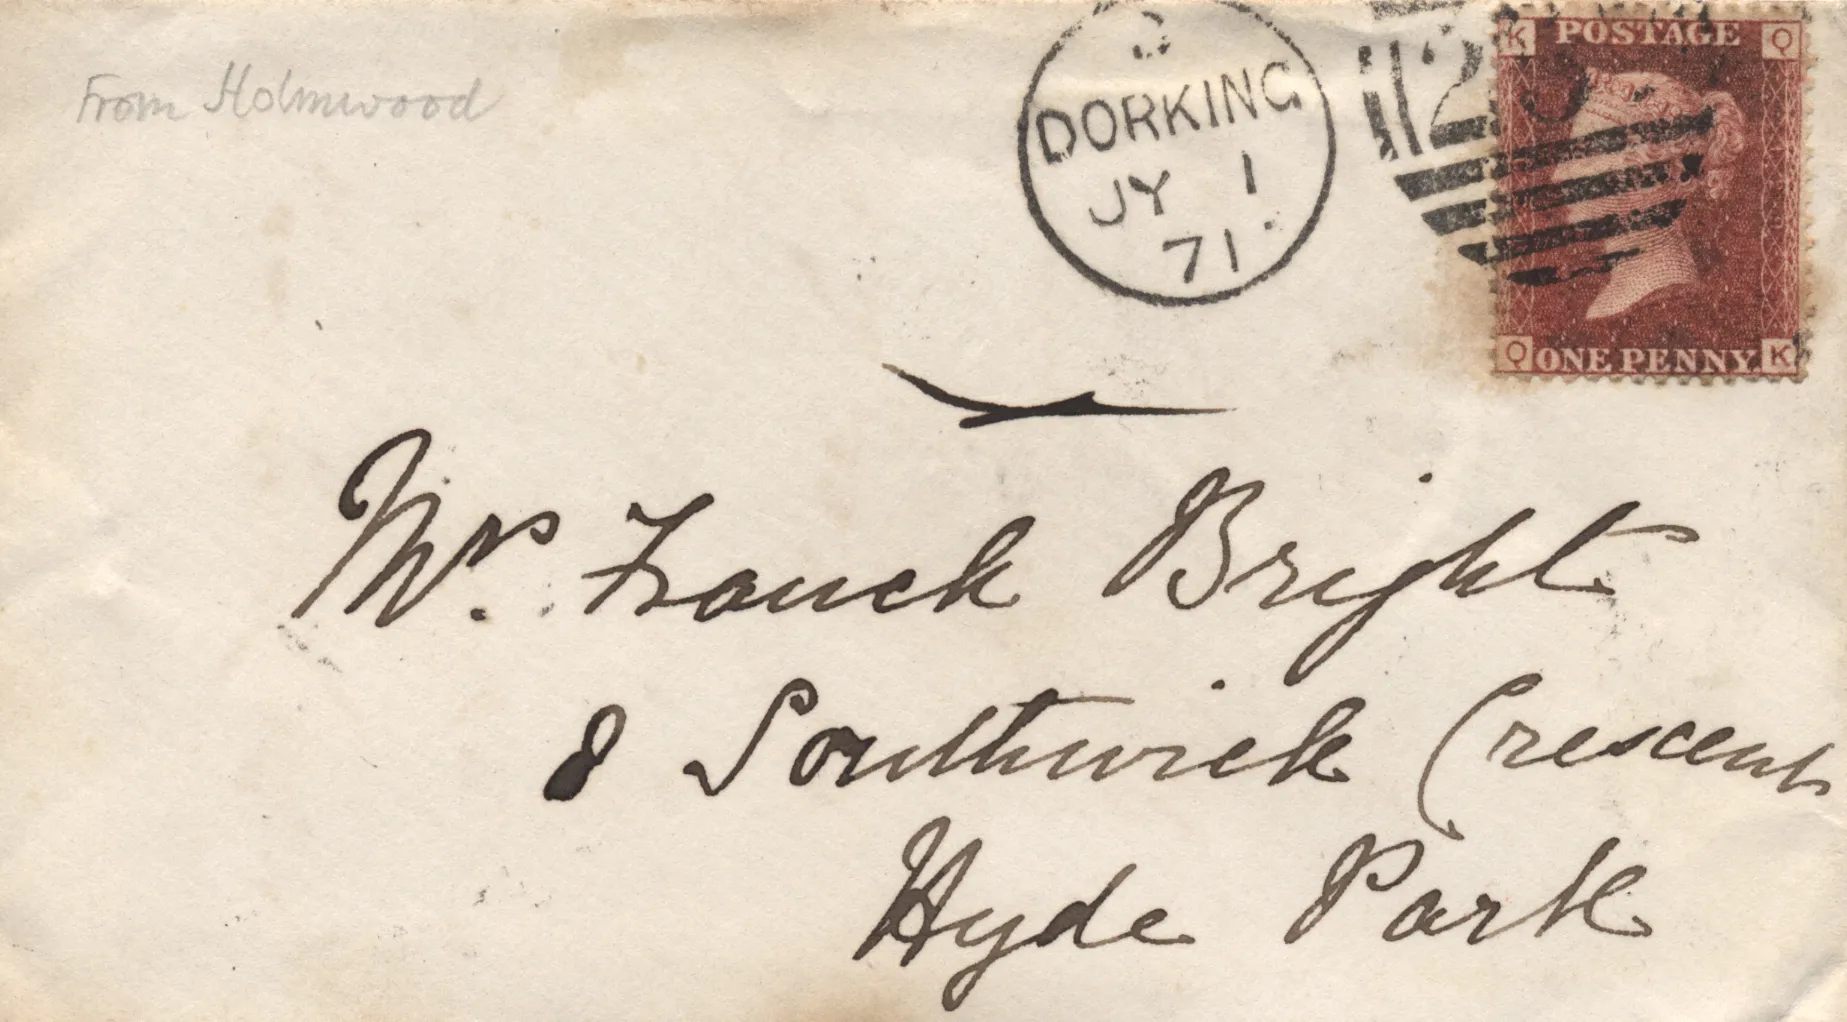 From Holmwood
C
DORKING
JY 1
71
K POSTAGE Q
Q ONE PENNY K
Mrs. Franck Bright
8 Southwick Crescent
Hyde Park